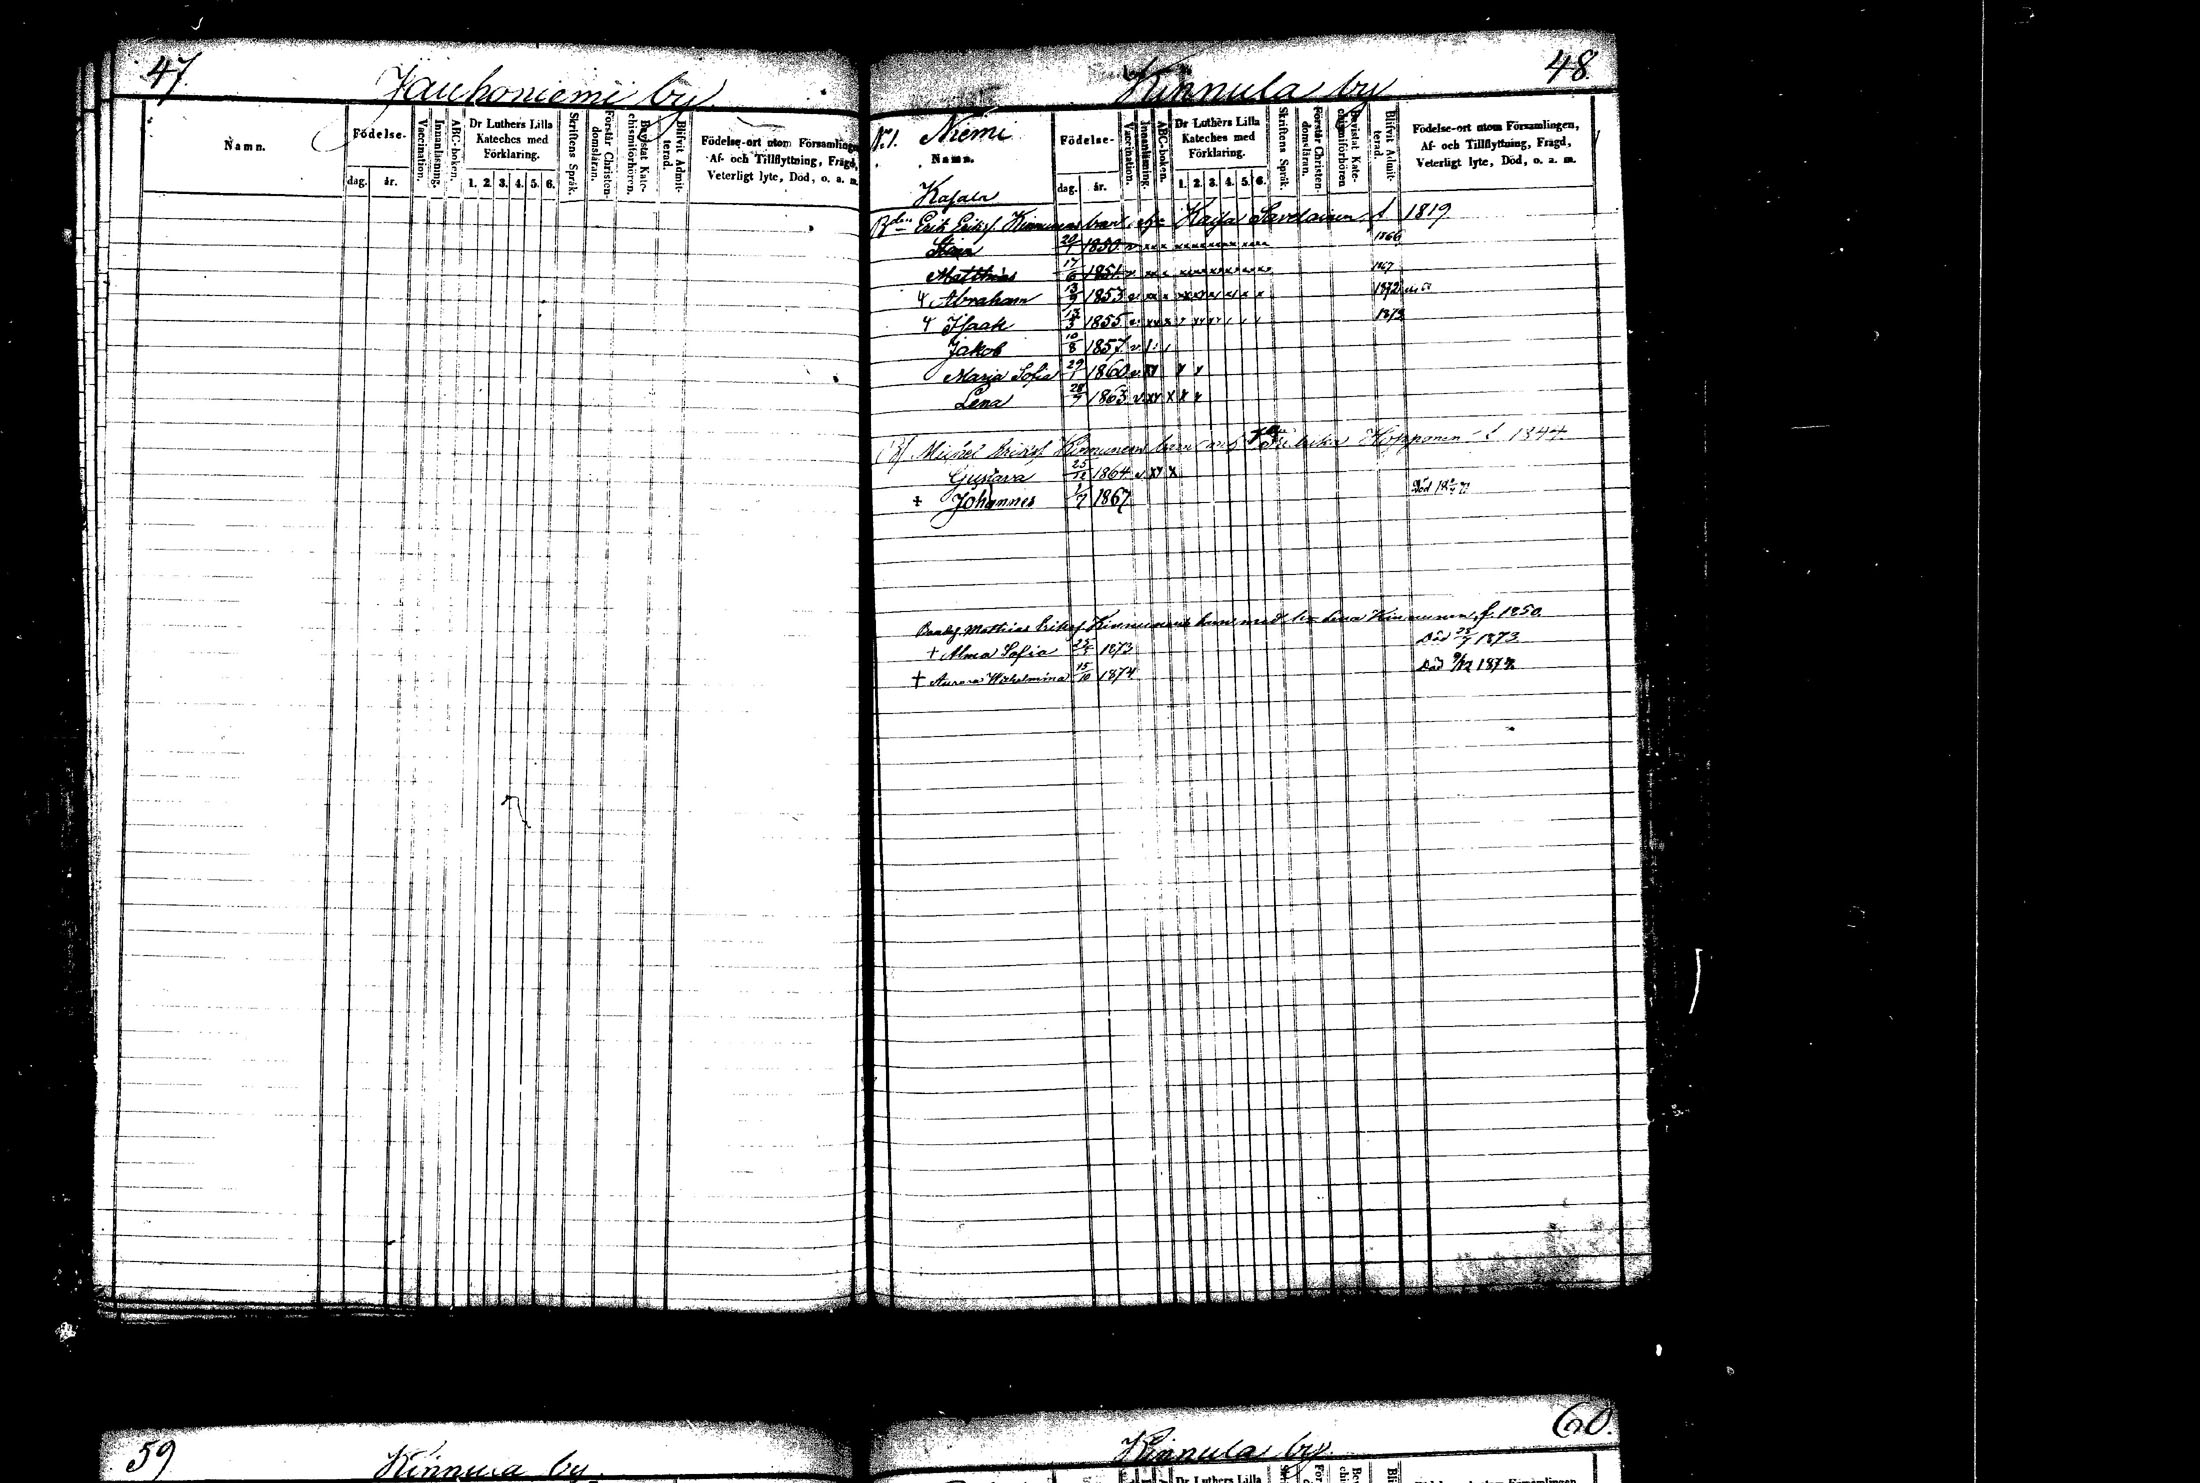 47.
Jauhoniemi by
Namn.
Födelse-
dag. år.
Vaccination.
Innanläsning.
ABC-boken.
Dr Luthers Lilla
Kateches med
Förklaring.
1. 2. 3. 4. 5. 6.
Skriftens Språk.
Förstår Christen-
domsläran.
Bevistat Kate-
chismiförhören.
Blifvit Admit-
terad.
Födelse-ort utom Församlingen,
Af- och Tillflyttning, Frägd,
Veterligt lyte, Död, o. a. m.
48.
Kinnula by
N:o 1. Niemi
Namn.
Födelse-
dag. år.
Vaccination.
Innanläsning.
ABC-boken.
Dr Luthers Lilla
Kateches med
Förklaring.
1. 2. 3. 4. 5. 6.
Skriftens Språk.
Förstår Christen-
domsläran.
Bevistat Kate-
chismiförhören
Blifvit Admit-
terad.
Födelse-ort utom Församlingen,
Af- och Tillflyttning, Frägd,
Veterligt lyte, Död, o. a. m.
Erik Eriksf. Kinnunens barn Kajsa Savelainen f 1819
20/1 1850 v xx x 1866
Matthias 17/6 1851 v xx x 1867
Abraham 13/9 1853 v xx x 1872
Isaak 13/3 1855 v xx x 1873
Jakob 10/8 1857 v
Maria Sofia 29/1 1860 v xx x x
Lena 28/7 1863 v xx x x x
Michel Eriksf. Kinnunens barn med Fredrika Hopponen f. 1844.
Gustava 25/12 1864 v xx x
+ Johannes 1/7 1867 Död
Mathias Eriksf. Kinnunens barn med Lena Kinnunen, f. 1850.
+ Alma Sofia 1873 Död 1873
+ Aurora Wilhelmina 15/10 1874 Död 9/12 1874
59
Kinnula by
Kinnula by.
60.
Dr Luthers Lilla